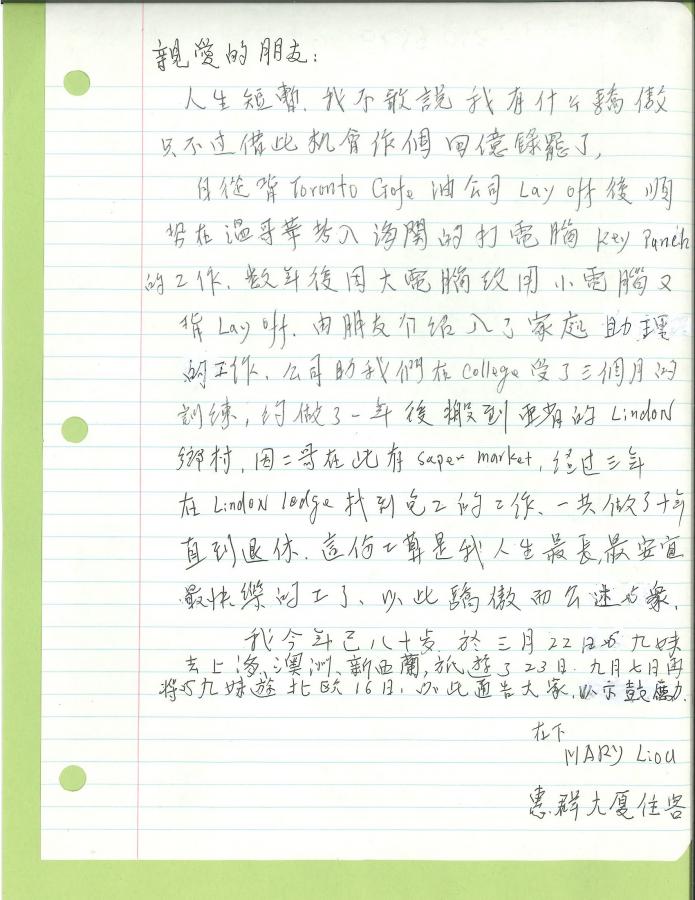 親愛的朋友：
人生短暫，我不敢說我有什么驕傲
只不过借此机會作個回億錄罷了，
自從背Toronto 油公司 Lay off 後順
勢在温哥華考入海関的打電腦 Key Punch
的工作．数年後因大電腦改用小電腦又
背 Lay off．由朋友介绍入了家庭助理
的工作．公司助我們在 College 受了三個月的
訓練，约做了一年後搬到西省的 Lindon
鄉村，因二哥在此有 super market，經过三年
在 Lindon lodge 找到包工的工作、一共做了十年
直到退休．這份工算是我人生最長，最安宜
最快樂的工了、以此驕傲而公述大衆．
我今年已八十岁 於三月22日與九妹
去上海，澳洲、新西蘭，旅遊了23日．九月七日再
将與九妹遊北欧16日．以此通告大家．以示鼓勵．
在下
MARY Liou
惠群大厦住客